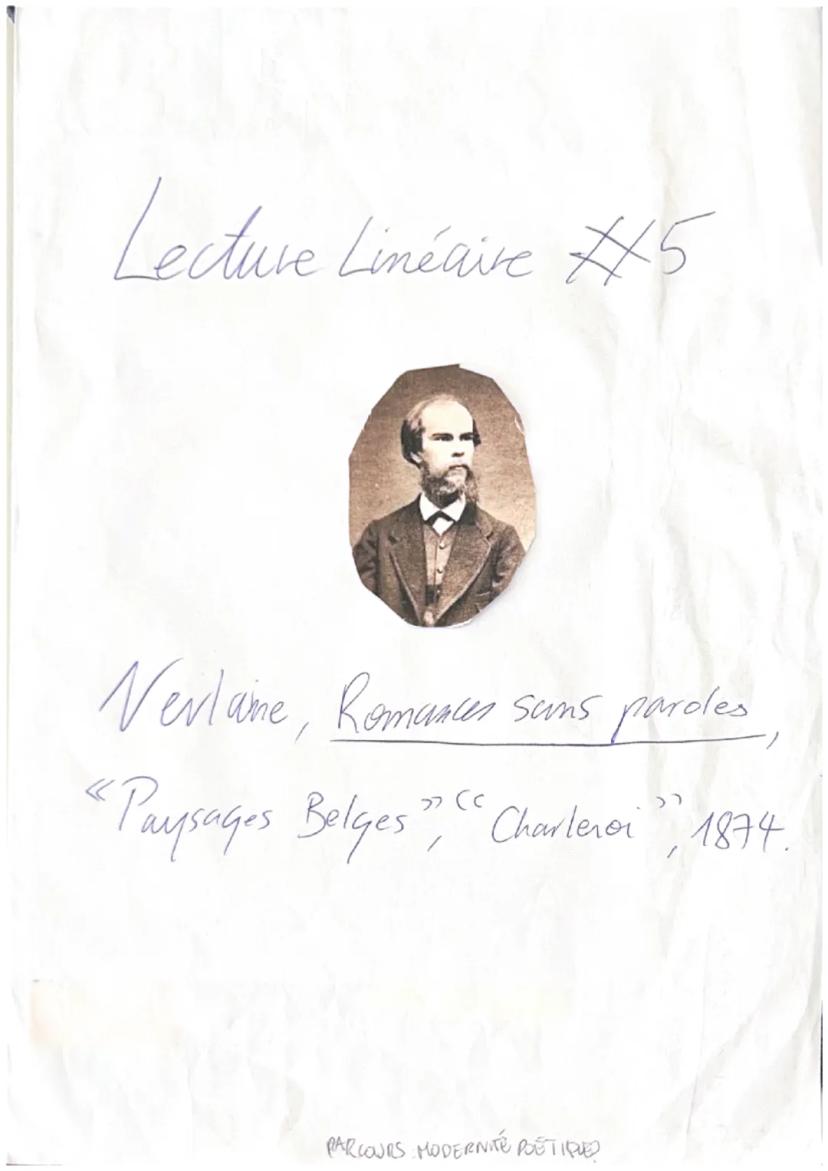 Lecture Linéaire #5
Verlaine, Romances sans paroles,
« Paysages Belges », “ Charleroi ”, 1874.
PARCOURS : MODERNITÉ POÉTIQUE?